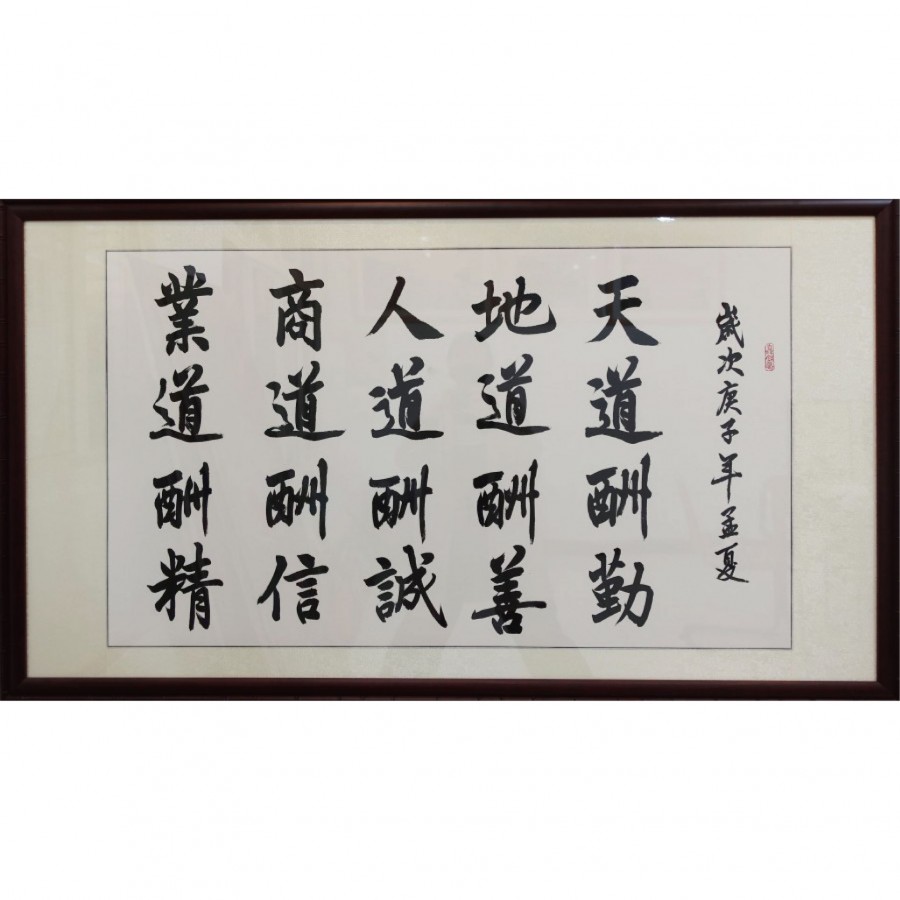 歲次庚子年孟夏
天道酬勤
地道酬善
人道酬誠
商道酬信
業道酬精